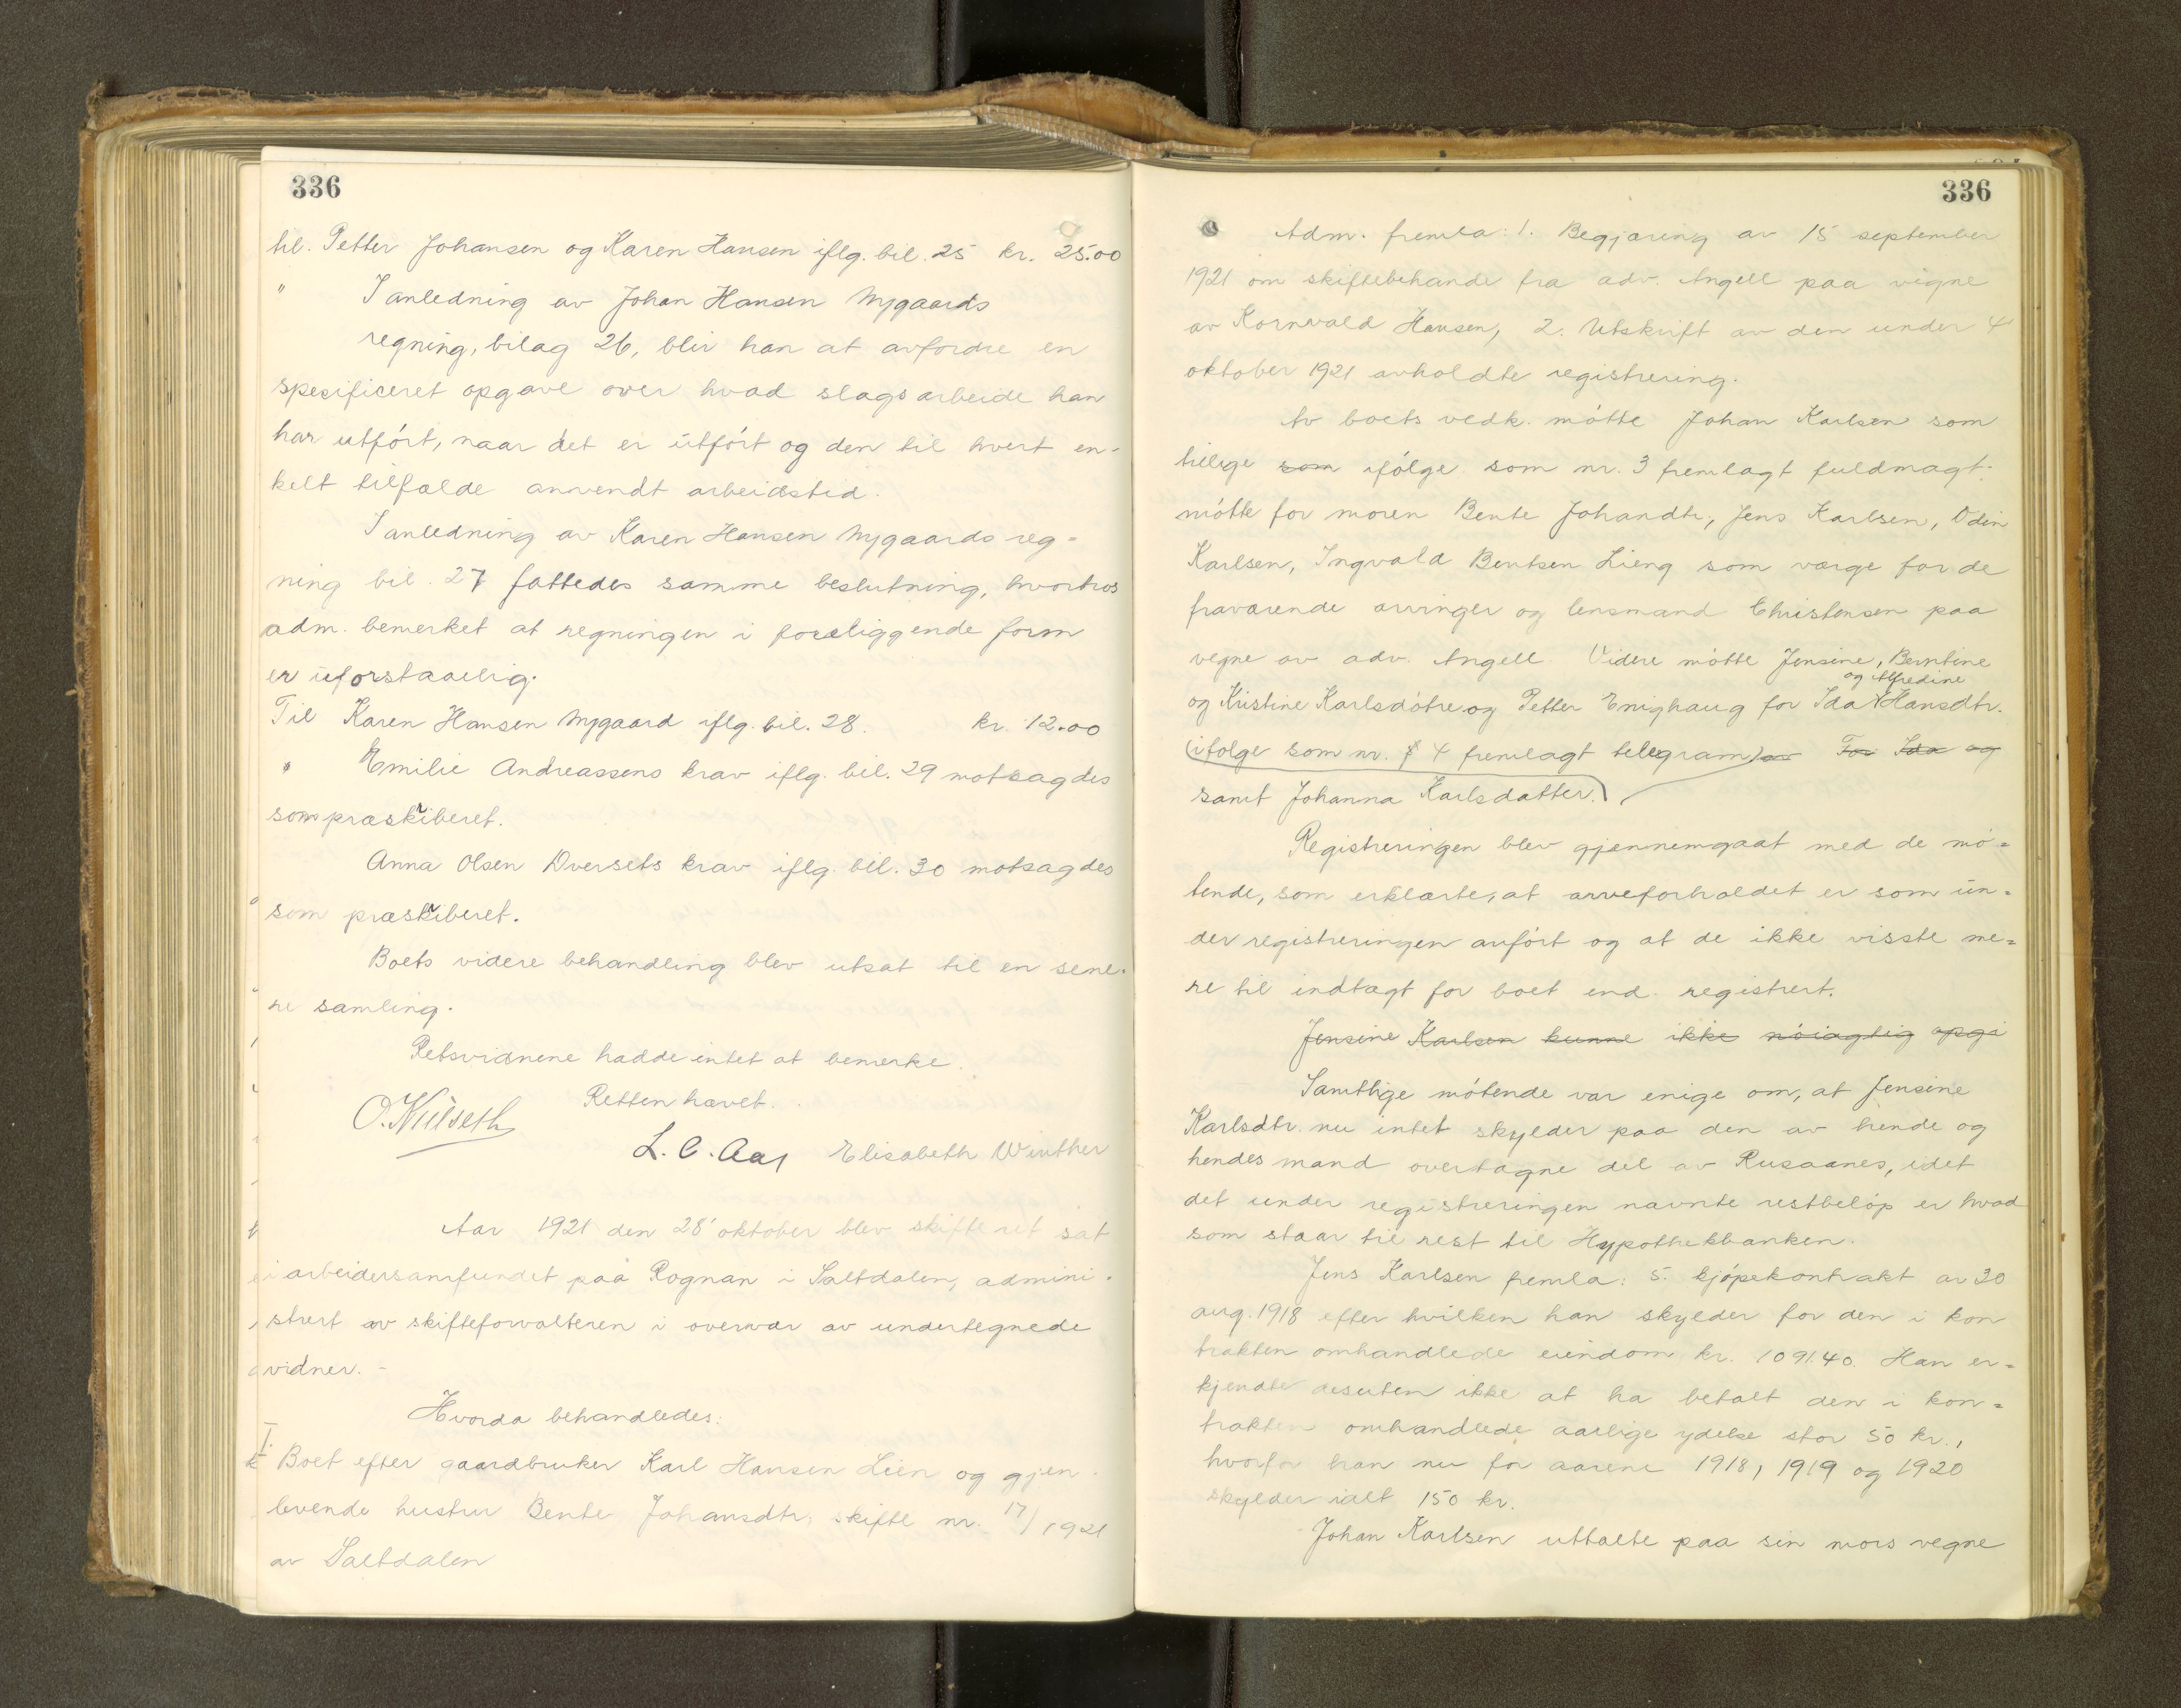 336
til. Petter Johansen og Karen Hansen iflg. bil. 25 kr. 25.00
" I anledning av Johan Hansen Nygaards
regning, bilag 26, blir han at avfordre en
spesificeret opgave over hvad slags arbeide han
har utført, naar det er utført og den til hvert en-
kelt tilfælde anvendt arbeidstid.
I anledning av Karen Hansen Nygaards reg=
ning bil. 27 fattedes samme beslutning, hvorhos
adm. bemerket at regningen i foreliggende form
er uforstaaelig.
Til Karen Hansen Nygaard iflg. bil. 28. kr. 12.00
" Emilie Andreassens krav iflg. bil. 29 motsagdes
som præskriberet.
Anna Olsen Dversets krav iflg. bil. 30 motsagdes
som præskriberet.
Boets videre behandling blev utsat til en sene-
re samling.
Retsvidnene hadde intet at bemerke.
Retten hævet.
O. Kulseth
L. C. Aas Elisabeth Winther
Aar 1921 den 28' oktober blev skifteret sat
i arbeidersamfundet paa Rognan i Saltdalen, admini-
strert av skifteforvalteren i overvær av undertegnede
vidner. -
Hvorda behandledes:
I. Boet efter gaardbruker Karl Hansen Lien og gjen-
levende hustru Bente Johansdtr, skifte nr. 17/1921
av Saltdalen
336
Adm. fremla: 1. Begjæring av 15 september
1921 om skiftebehande fra adv. Angell paa vegne
av Kornvald Hansen, 2. Utskrift av den under 4'
oktober 1921 avholdte registrering.
Av boets vedk. møtte Johan Karlsen som
tillige som ifølge som nr. 3 fremlagt fuldmagt.
møtte for moren Bente Johandtr, Jens Karlsen, Odin
Karlsen, Ingvald Bentsen Lieng som værge for de
fraværende arvinger og lensmand Christensen paa
vegne av adv. Angell Videre møtte Jensine, Berntine
og Alfredine
og Kristine Karlsdøtre og Petter Enighaug for Ida Hansdtr.
(ifølge som nr. 4 fremlagt telegram) For Ida og
samt Johanna Karlsdatter.
Registreringen blev gjennemgaat med de mø=
tende, som erklærte, at arveforholdet er som un=
der registreringen anført og at de ikke visste me=
re til indtægt for boet end registrert.
Jensine Karlsen kunne ikke nøiagtig opgi
Samtlige møtende var enige om, at Jensine
Karlsdtr. nu intet skylder paa den av hende og
hendes mand overtagne del av Rusaanes, idet
det under registreringen nævnte restbeløp er hvad
som staar til rest til Hypothekbanken.
Jens Karlsen fremla: 5. kjøpekontrakt av 30
aug. 1918 efter hvilken han skylder for den i kon
trakten omhandlede eiendom kr. 1091.40. Han er=
kjendte desuten ikke at ha betalt den i kon=
trakten omhandlede aarlige ydelse stor 50 kr.,
hvorfor han nu for aarene 1918, 1919 og 1920
skylder ialt 150 kr.
Johan Karlsen uttalte paa sin mors vegne